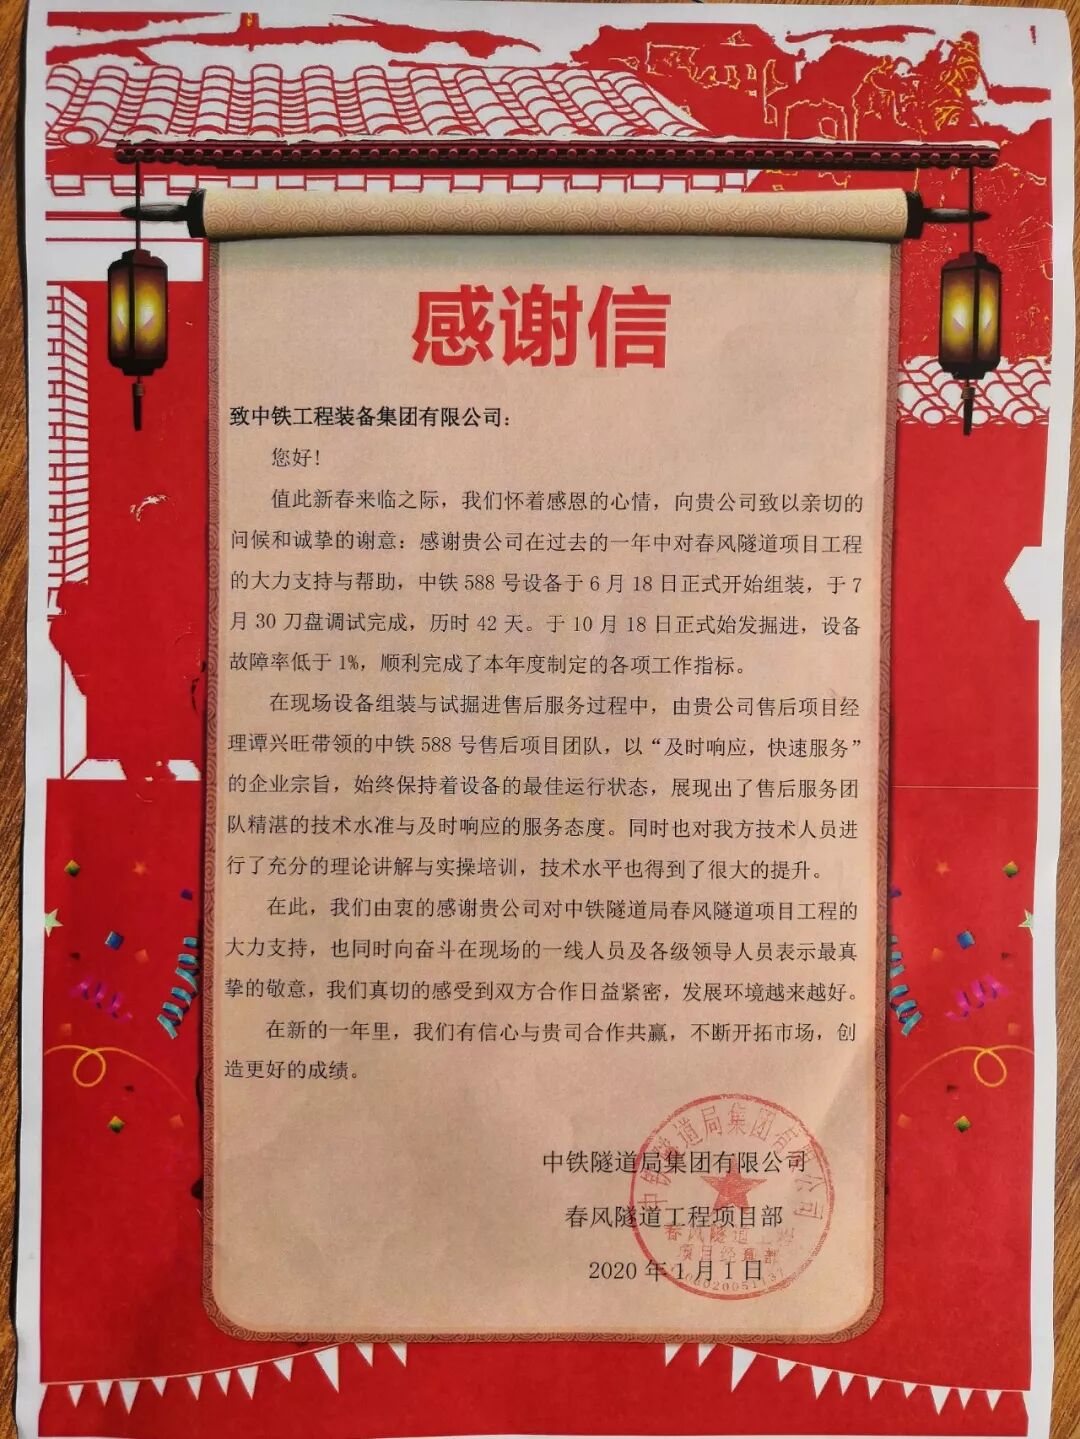 感谢信
致中铁工程装备集团有限公司：
您好！
值此新春来临之际，我们怀着感恩的心情，向贵公司致以亲切的
问候和诚挚的谢意：感谢贵公司在过去的一年中对春风隧道项目工程
的大力支持与帮助，中铁 588 号设备于 6 月 18 日正式开始组装，于 7
月 30 刀盘调试完成，历时 42 天。于 10 月 18 日正式始发掘进，设备
故障率低于 1%，顺利完成了本年度制定的各项工作指标。
在现场设备组装与试掘进售后服务过程中，由贵公司售后项目经
理谭兴旺带领的中铁 588 号售后项目团队，以“及时响应，快速服务”
的企业宗旨，始终保持着设备的最佳运行状态，展现出了售后服务团
队精湛的技术水准与及时响应的服务态度。同时也对我方技术人员进
行了充分的理论讲解与实操培训，技术水平也得到了很大的提升。
在此，我们由衷的感谢贵公司对中铁隧道局春风隧道项目工程的
大力支持，也同时向奋斗在现场的一线人员及各级领导人员表示最真
挚的敬意，我们真切的感受到双方合作日益紧密，发展环境越来越好。
在新的一年里，我们有信心与贵司合作共赢，不断开拓市场，创
造更好的成绩。
中铁隧道局集团有限公司
春风隧道工程项目部
2020 年 1 月 1 日
中铁隧道局集团有限公司
春风隧道工程
项目经理部